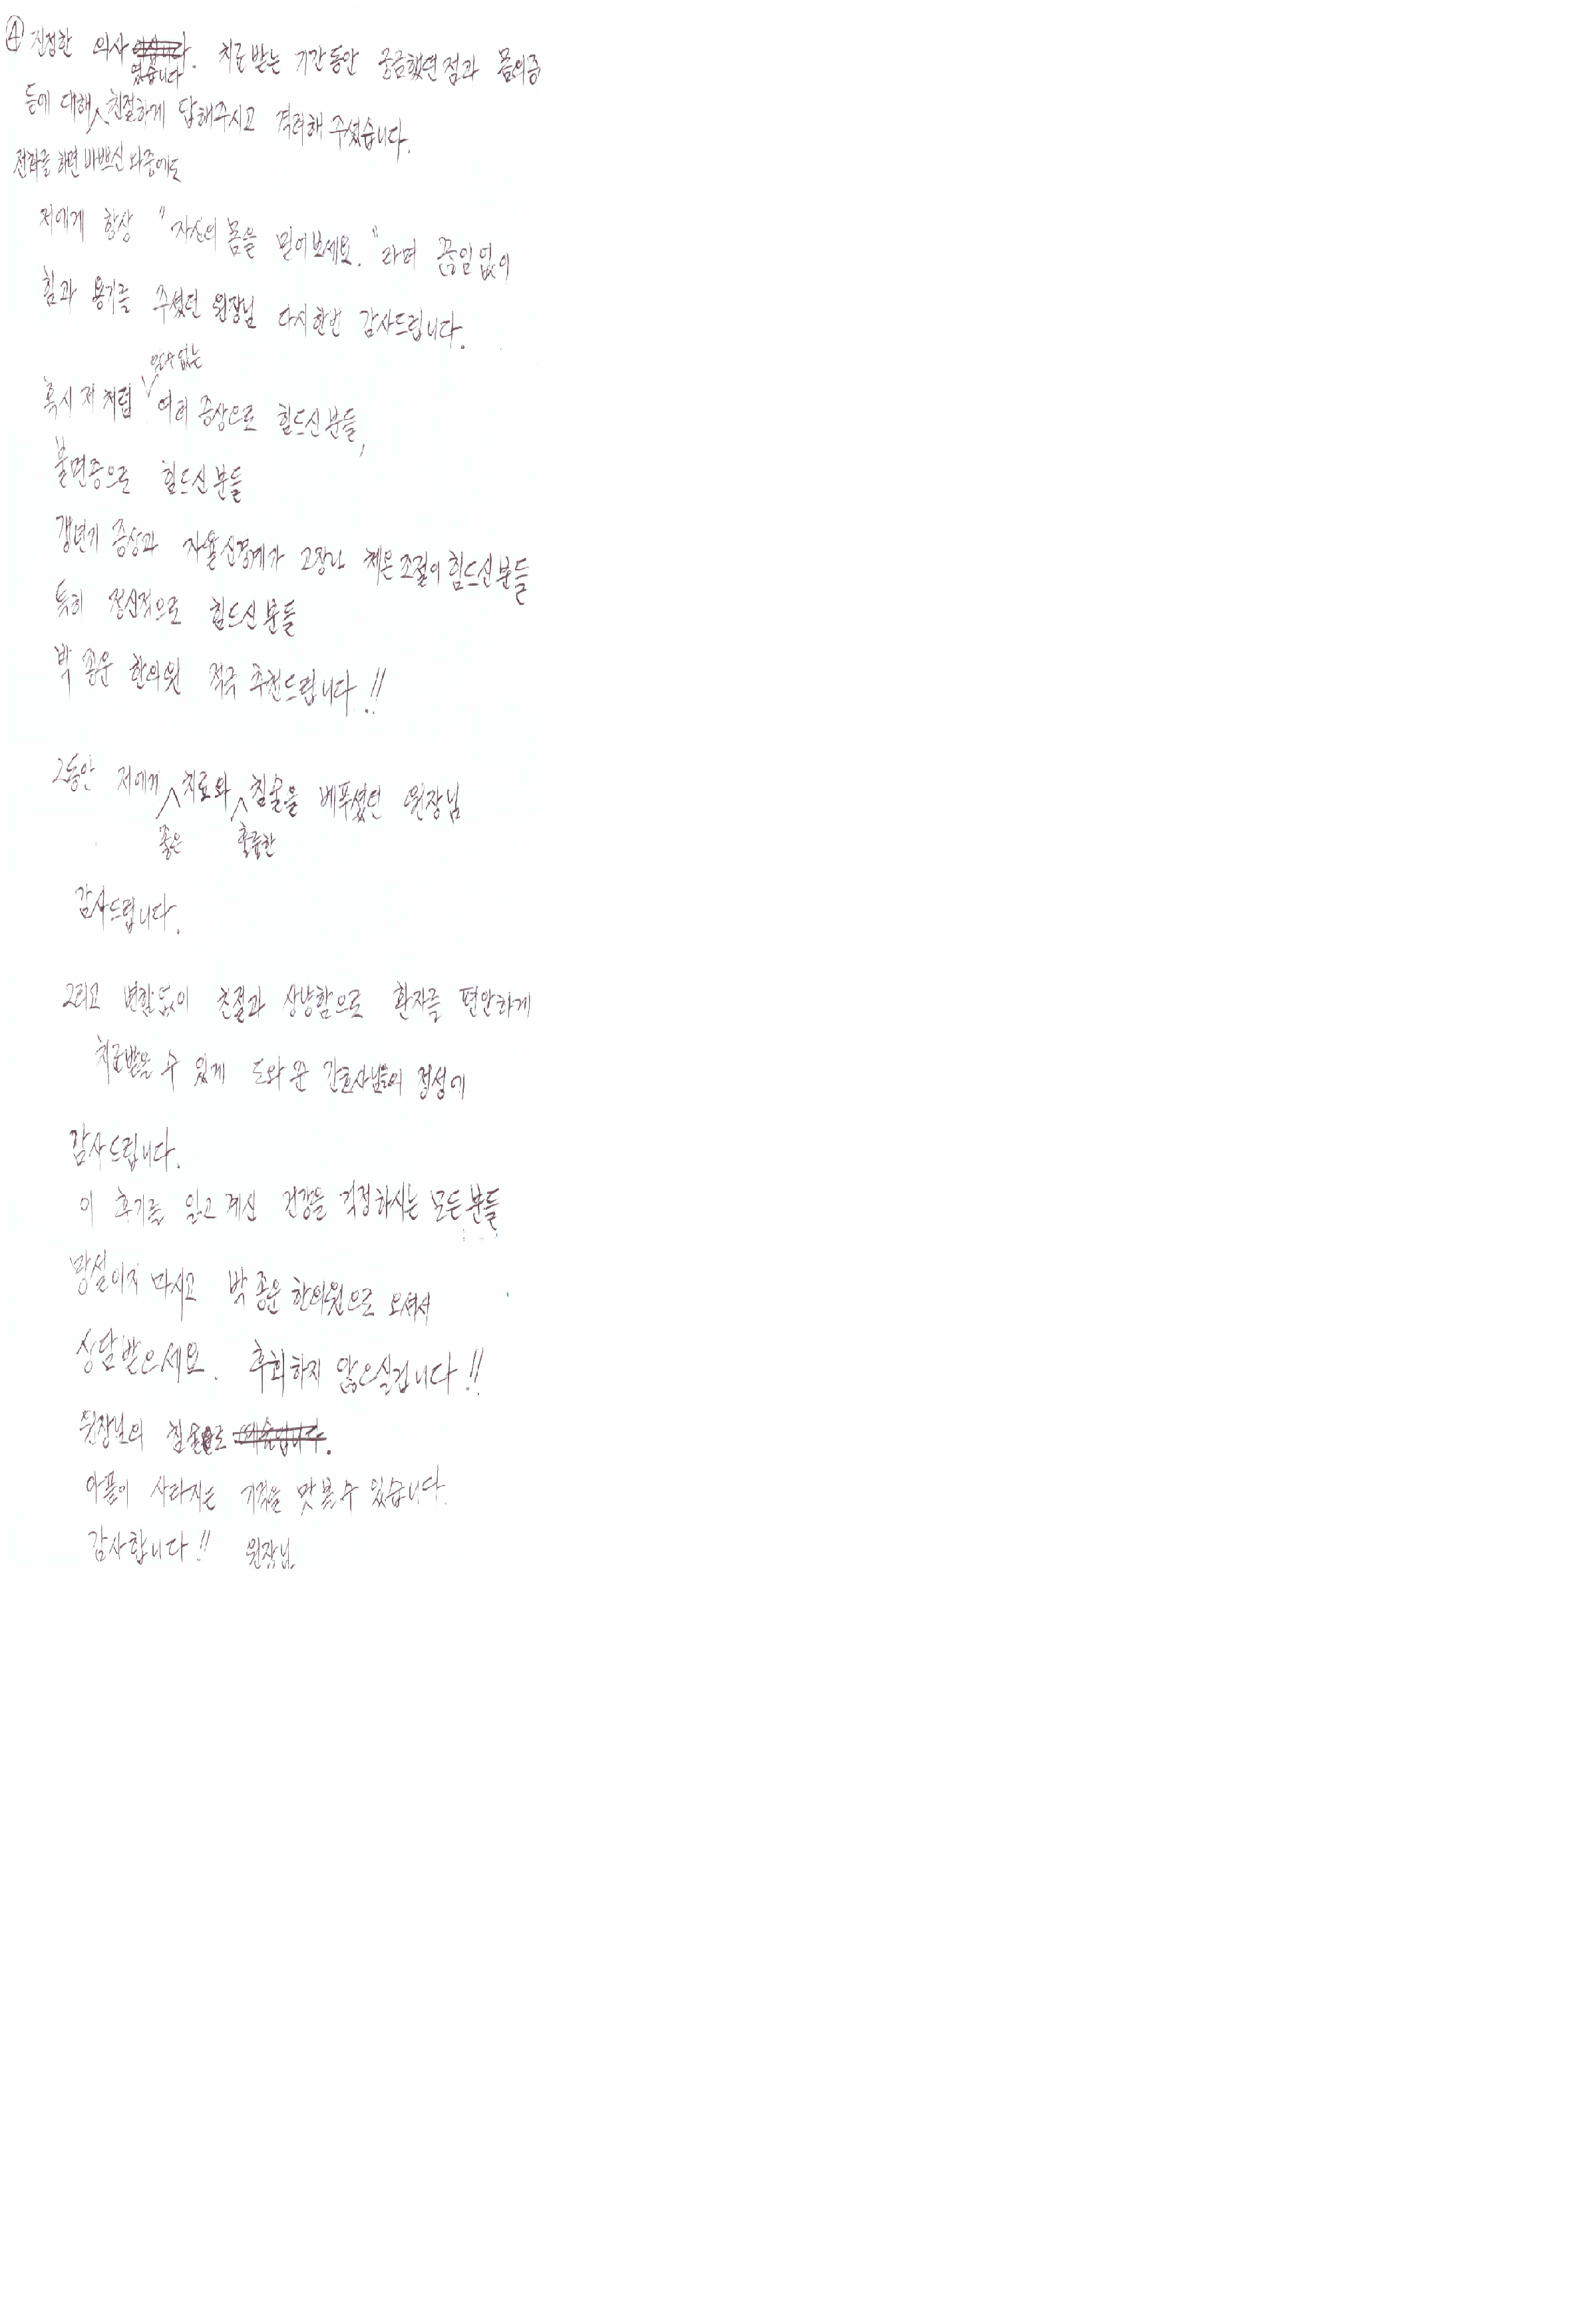 ④ 진정한 의사였습니다. 치료받는 기간동안 궁금했던 점과 몸의증
등에 대해 친절하게 답해주시고 격려해 주셨습니다.
전화를 하면 바쁘신 와중에도
저에게 항상 "자신의 몸을 믿어보세요."라며 끊임없이
힘과 용기를 주셨던 원장님 다시한번 감사드립니다.
알수없는
혹시 저처럼 여러 증상으로 힘드신분들,
불면증으로 힘드신분들
갱년기 증상과 자율신경계가 고장나 체온조절이 힘드신분들
특히 정신적으로 힘드신분들
박종운 한의원 적극 추천드립니다!!
그동안 저에게 치료와 침술을 베푸셨던 원장님
좋은 훌륭한
감사드립니다.
그리고 변함없이 친절과 상냥함으로 환자를 편안하게
치료받을 수 있게 도와준 간호사님들의 정성에
감사드립니다.
이 후기를 읽고계신 건강을 걱정하시는 모든분들
망설이지 마시고 박종운 한의원으로 오셔서
상담받으세요. 후회하지 않으실겁니다!!
원장님의 침술로
아픔이 사라지는 기적을 맛볼수 있습니다.
감사합니다!! 원장님